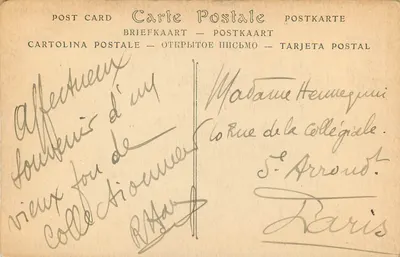 POST CARD Carte Postale POSTKARTE
BRIEFKAART — POSTKAART
CARTOLINA POSTALE — ОТКРЫТОЕ ПИСЬМО — TARJETA POSTAL
Affectueux
souvenir d'un
vieux fou de
collectionneur
Madame Hennequin
Rue de la Collégiale.
5e Arrondt.
Paris